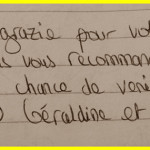 grazie pour vot
s vous recomman
chance de veni
Géraldine et